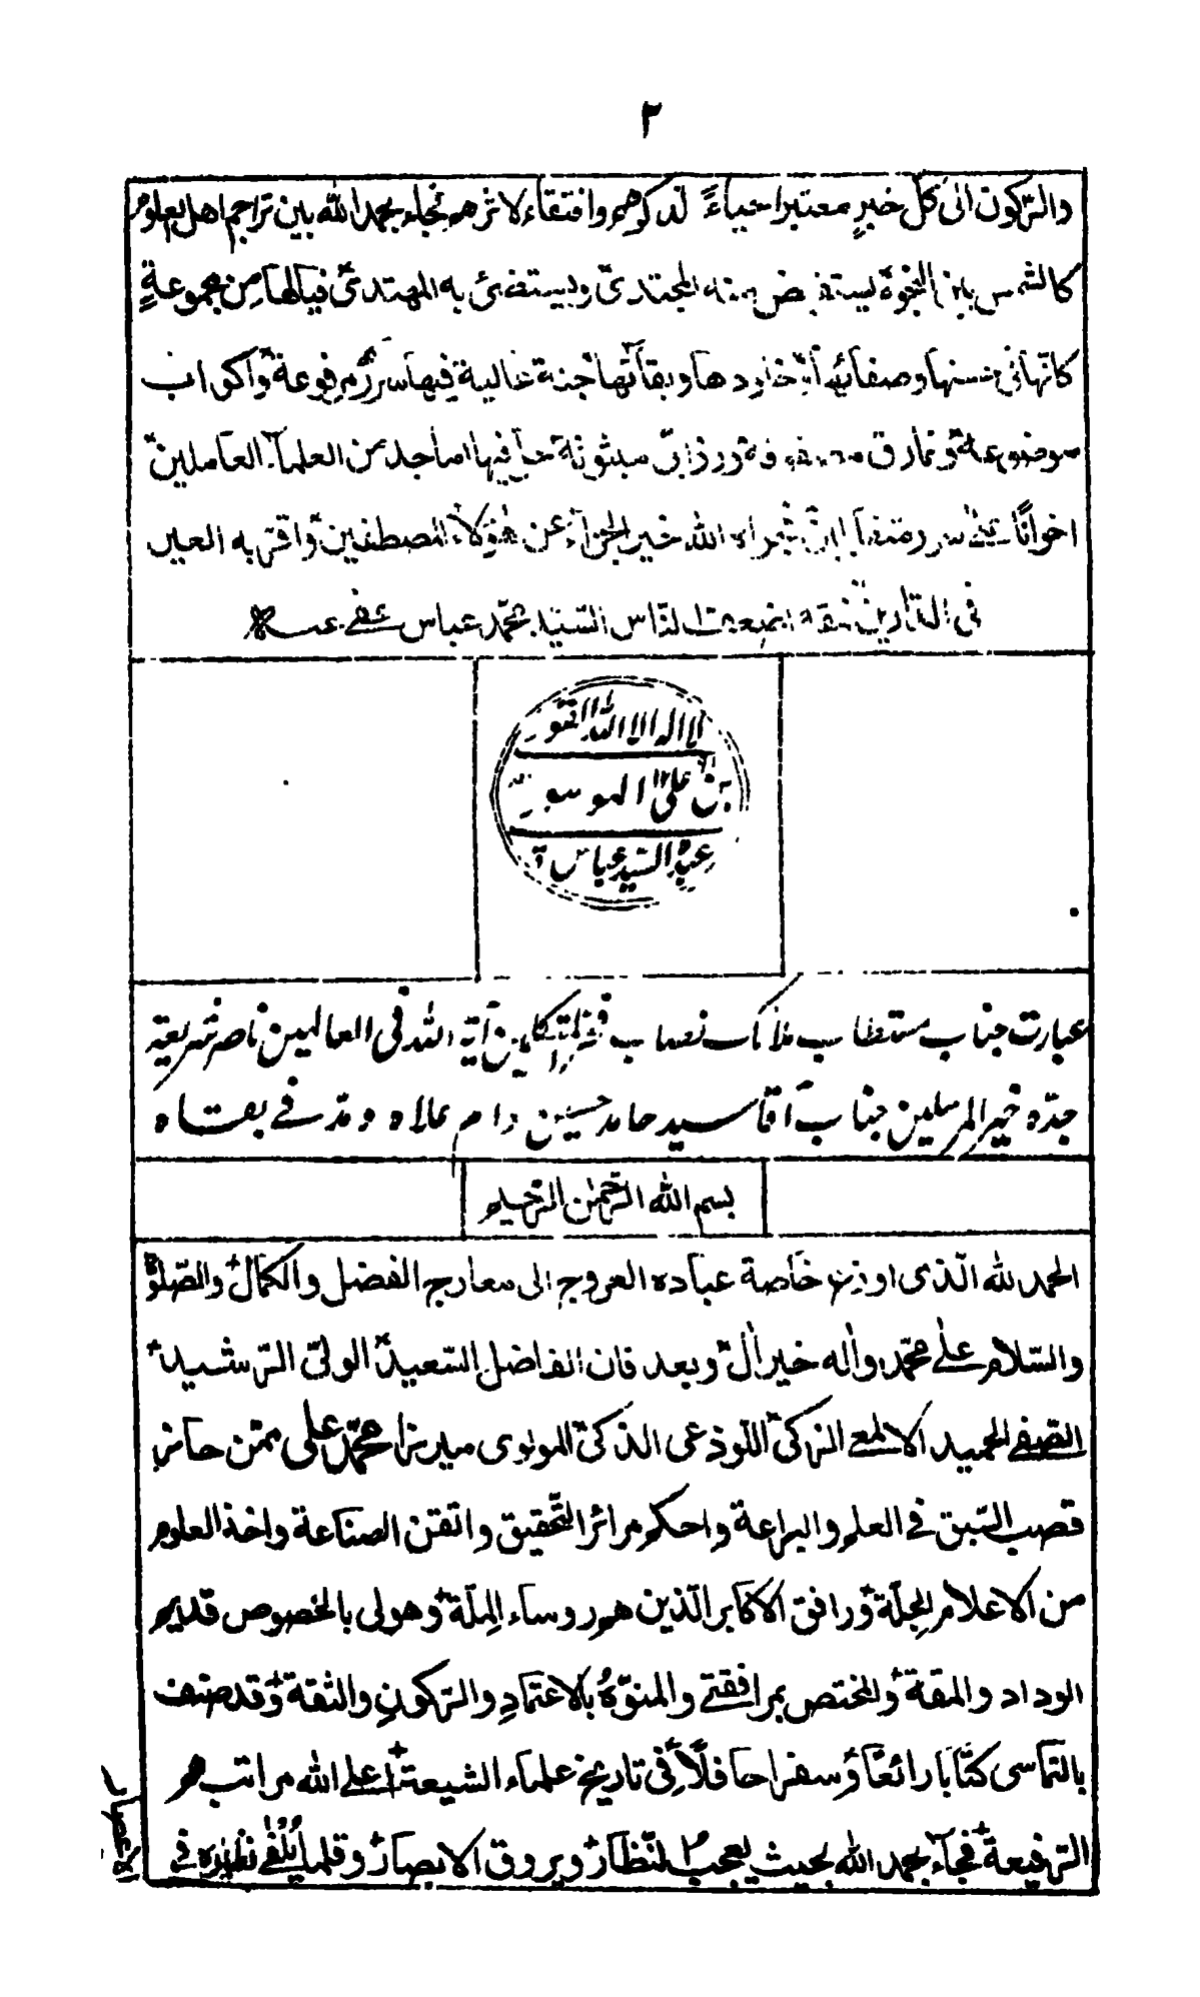 ٢
والركون الى كل خبر معتبر احياءً لذكرهم واقتفاء لاثرهم فجاء بحمد الله بين تراجم اهل العلوم
كالشمس بين النجوم يستفيض منه المجتدى ويستضئ به المهتدى فيالها من مجموعةٍ
كانها فى حسنها وصفائها وبقائها جنة عالية فيها سررٌ مرفوعة واكواب
موضوعة ونمارق مصفوفة وزرابىّ مبثوثة حل فيها اماجد من العلماء العاملين
اخوانًا على سرر متقابلين جزاه الله خير الجزاء عن هؤلاء المصطفين واقرّ به العين
فى الدارين نمقه الناس السيّد محمّد عباس عفى عنه
لا اله الا الله
بن على الموسوى
عبده السيد عباس
عبارت جناب مستطاب ملائك نصاب آية الله فى العالمين ناصر شريعة
جدّه خير المرسلين جناب آقا سيد حامد حسين دام علاه ومدّ فى بقاه
بسم الله الرّحمٰن الرّحيم
الحمد لله الّذى خاصة عباده العروج الى معارج الفضل والكمال والصّلوٰة
والسّلام علے محمّد واٰله خير اٰل وبعد فان الفاضل السّعيد الولىّ الرّشيد
الصّفے الحميد الالمعے الزكىّ اللّوذعى الذكىّ المولوى ميرزا محمّد على ممّن حاز
قصب السّبق فى العلم والبراعة واحكم مرائر التّحقيق واتقن الصناعة واخذ العلوم
من الاعلام الجلّة ورافق الاكابر الّذين هم روساء الملّة وهو لى بالخصوص قديم
الوداد والمقة والمختص بمرافقتے والمنوّهُ بالاعتمادِ والرّكونِ والثقة وقد صنف
بالتماسى كتابا رائعًا وسفرا حافلًا فى تاريخ علماء الشيعة اعلے الله مراتبهم
الرّفيعة فجاء بحمد الله بحيث يعجب النّظار ويروق الابصار وقلما يُلْفٰى نظيره فى
الاعصار